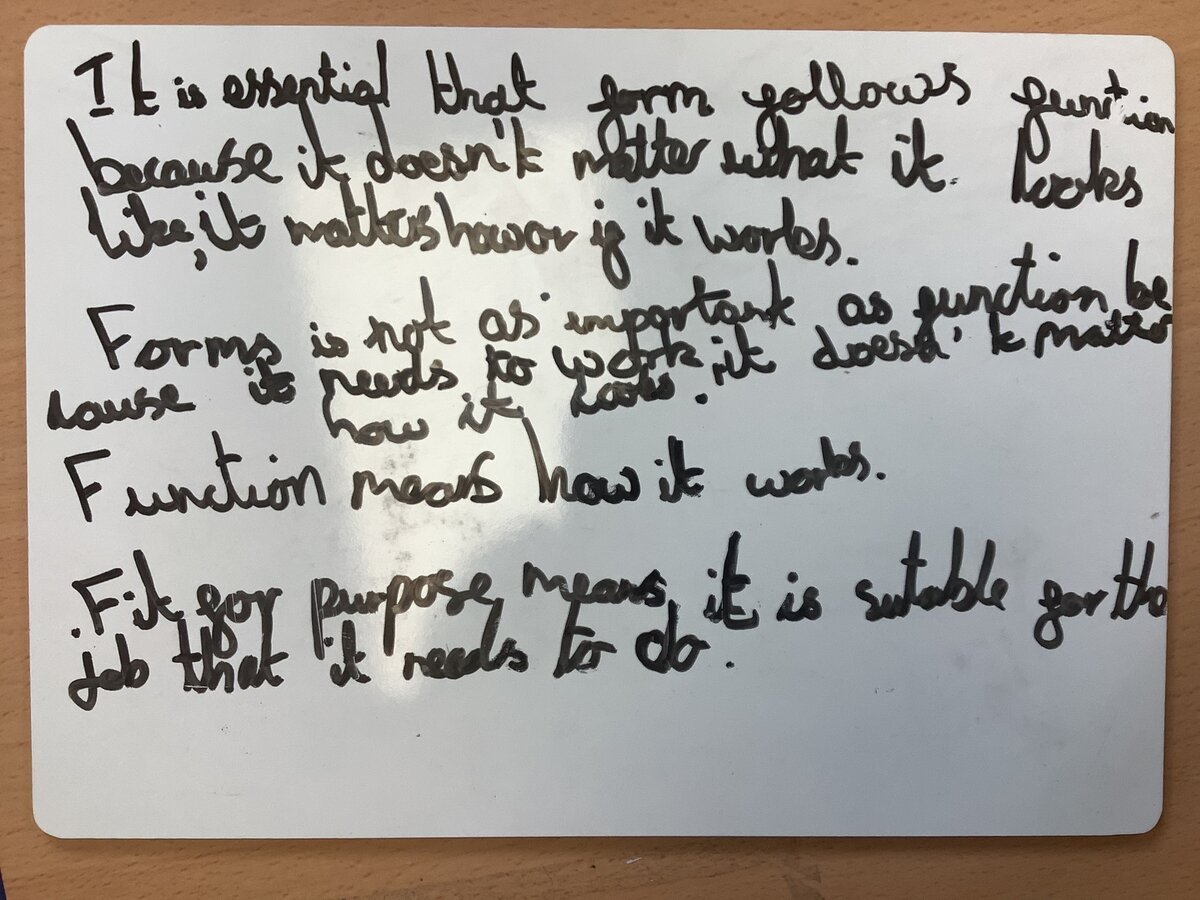 It is essential that form follows funtion
because it doesn't matter what it. looks
like, it matters howor if it works.
Forms is not as important as function be
cause it needs to work it doesn't matter
how it looks.
Function means how it works.
.Fit for purpose means it is sutable for the
job that it needs to do.